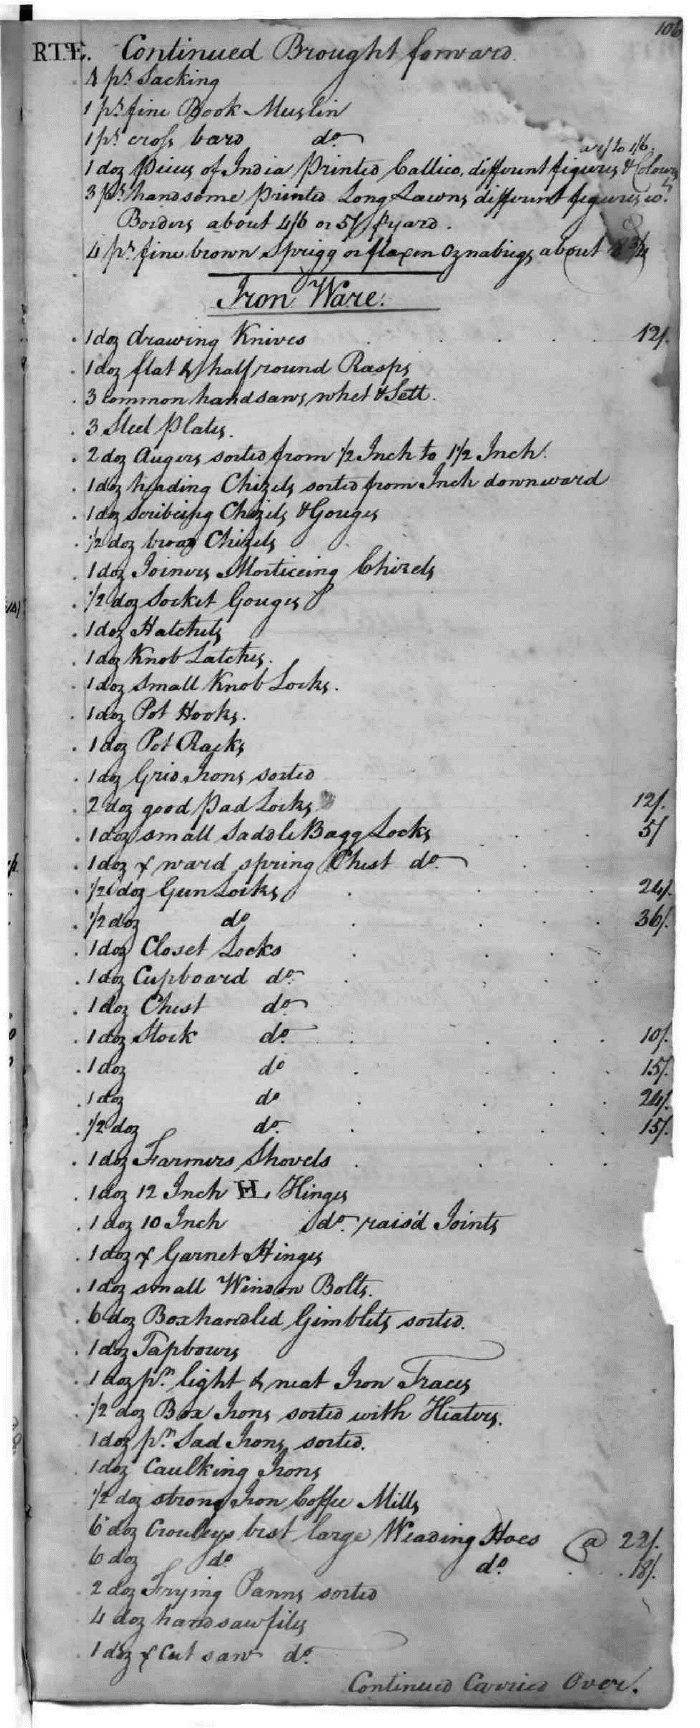 106
RTE. Continued Brought forward
4 ps Sacking
1 ps fine Book Muslin
1 ps cross bard do
at / to 1/6
1 doz Pieces of India Printed Callico, different figures & Colours
3 ps handsome Printed Long Lawns different figures wt.
Borders about 4/6 or 5/ yard.
4 ps fine brown Sprigg or flaxen Oznabrigs about
Iron Ware.
1 doz drawing Knives 12/.
1 doz flat & half round Rasps
3 common handsaws, whet & Sett.
3 Steel Plates.
2 doz Augers sorted from 1/2 Inch to 1 1/2 Inch.
1 doz heading Chizels sorted from Inch downward
1 doz scribeing Chizels & Gouges
1/2 doz broad Chizels
1 doz Joiners Morticeing Chizels
1/2 doz Socket Gouges
1 doz Hatchets
1 doz Knob Latches.
1 doz small Knob Locks.
1 doz Pot Hooks.
1 doz Pot Racks
1 doz Grid Irons sorted
2 doz good Pad Locks 12/.
1 doz small Saddle Bagg Locks 5/
1 doz x ward spring Chest do.
1/2 doz Gun Locks 24/.
1/2 doz do 36/.
1 doz Closet Locks
1 doz Cupboard do.
1 doz Chest do
1 doz Stock do. 10/.
1 doz do 15/.
1 doz do 24/.
1/2 doz do. 15/.
1 doz Farmers Shovels
1 doz 12 Inch HL Hinges
1 doz 10 Inch do. rais'd Joints
1 doz x Garnet Hinges
1 doz small Window Bolts.
6 doz Boxhandled Gimblets sorted.
1 doz Tapbores
1 doz pr. light & neat Iron Traces
1/2 doz Box Irons sorted with Heaters.
1 doz pr. Sad Irons sorted.
1 doz Caulking Irons
1/2 doz strong Iron Coffee Mills
6 doz Crowleys best large Weading Hoes @ 22/.
6 doz do do. 18/.
2 doz Frying Panns sorted
4 doz handsaw files
1 doz x cut saw do.
Continued Carried Over.